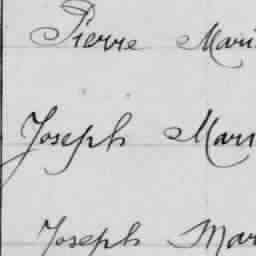 Pierre Mari
Joseph Mari
Joseph Mar